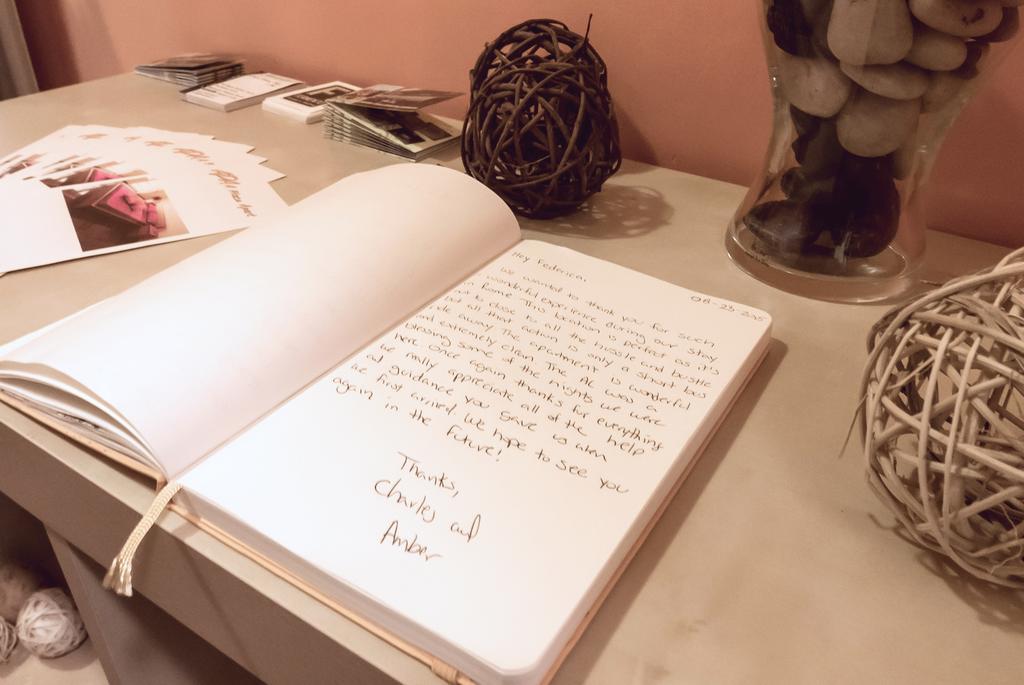 Hey Federica,
08-23-2015
We wanted to thank you for such
a wonderful experience during our stay
in Rome. This location is perfect as it's
not to close to all the hustle and bustle
but all that action is only a short bus
ride away. The apartment is wonderful
and extremely clean. The AC was a
blessing some of the nights we were
here. Once again thanks for everything
we really appreciate all of the help
and guidance you gave us when
we first arrived. We hope to see you
again in the future!
Thanks,
Charles and
Amber